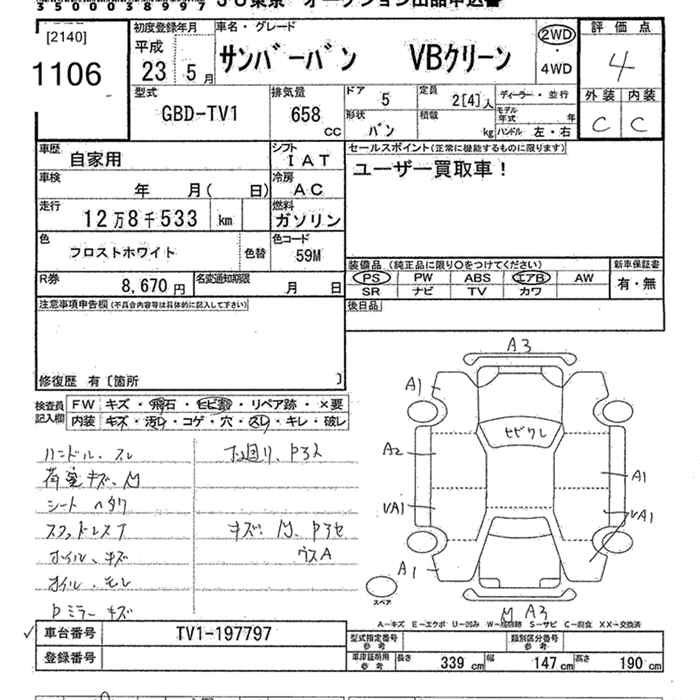 350003899７
JU東京 オークション出品申込書
[2140]
1106
初度登録年月
平成
23 5月
車名・グレード
サンバーバン VBクリーン
2WD
4WD
評価点
4
外装 内装
C C
型式
GBD-TV1
排気量
658
CC
ドア 5
定員 2[4]人
ディーラー・並行
形状
バン
積載
kg
モデル年式 年
ハンドル 左・右
車歴
自家用
シフト
IAT
車検
年 月( 日)
冷房
AC
走行
12万8千533 km
燃料
ガソリン
色
フロストホワイト
色替
色コード
59M
R券
8,670円
名変通知期限
月 日
セールスポイント(正常に機能するものに限ります)
ユーザー買取車!
装備品 (純正品に限り○をつけてください)
PS PW ABS エアB AW
SR ナビ TV カワ
新車保証書
有・無
後日品
注意事項申告欄(不具合内容等は具体的に記入して下さい)
修復歴 有〔箇所 〕
検査員記入欄
FW キズ・飛石・ヒビ割・リペア跡・×要
内装 キズ・汚レ・コゲ・穴・スレ・キレ・破レ
ハンドル、スレ
荷室キズ、M
シート ヘタリ
ホイル、キズ
オイル、モレ
Dミラーキズ
下廻り、Pサヒ
キズ、M、Pヨセ
ウスA
A3
A1
ヒビワレ
A2
A1
VA1
VA1
A1
スペア
M A3
A－キズ E－エクボ U－凹み W－補修跡 S－サビ C－腐食 XX－交換済
車台番号 TV1-197797
登録番号
型式指定番号
参考
類別区分番号
参考
車庫証明用
参考
長さ 339 cm 幅 147 cm 高さ 190 cm